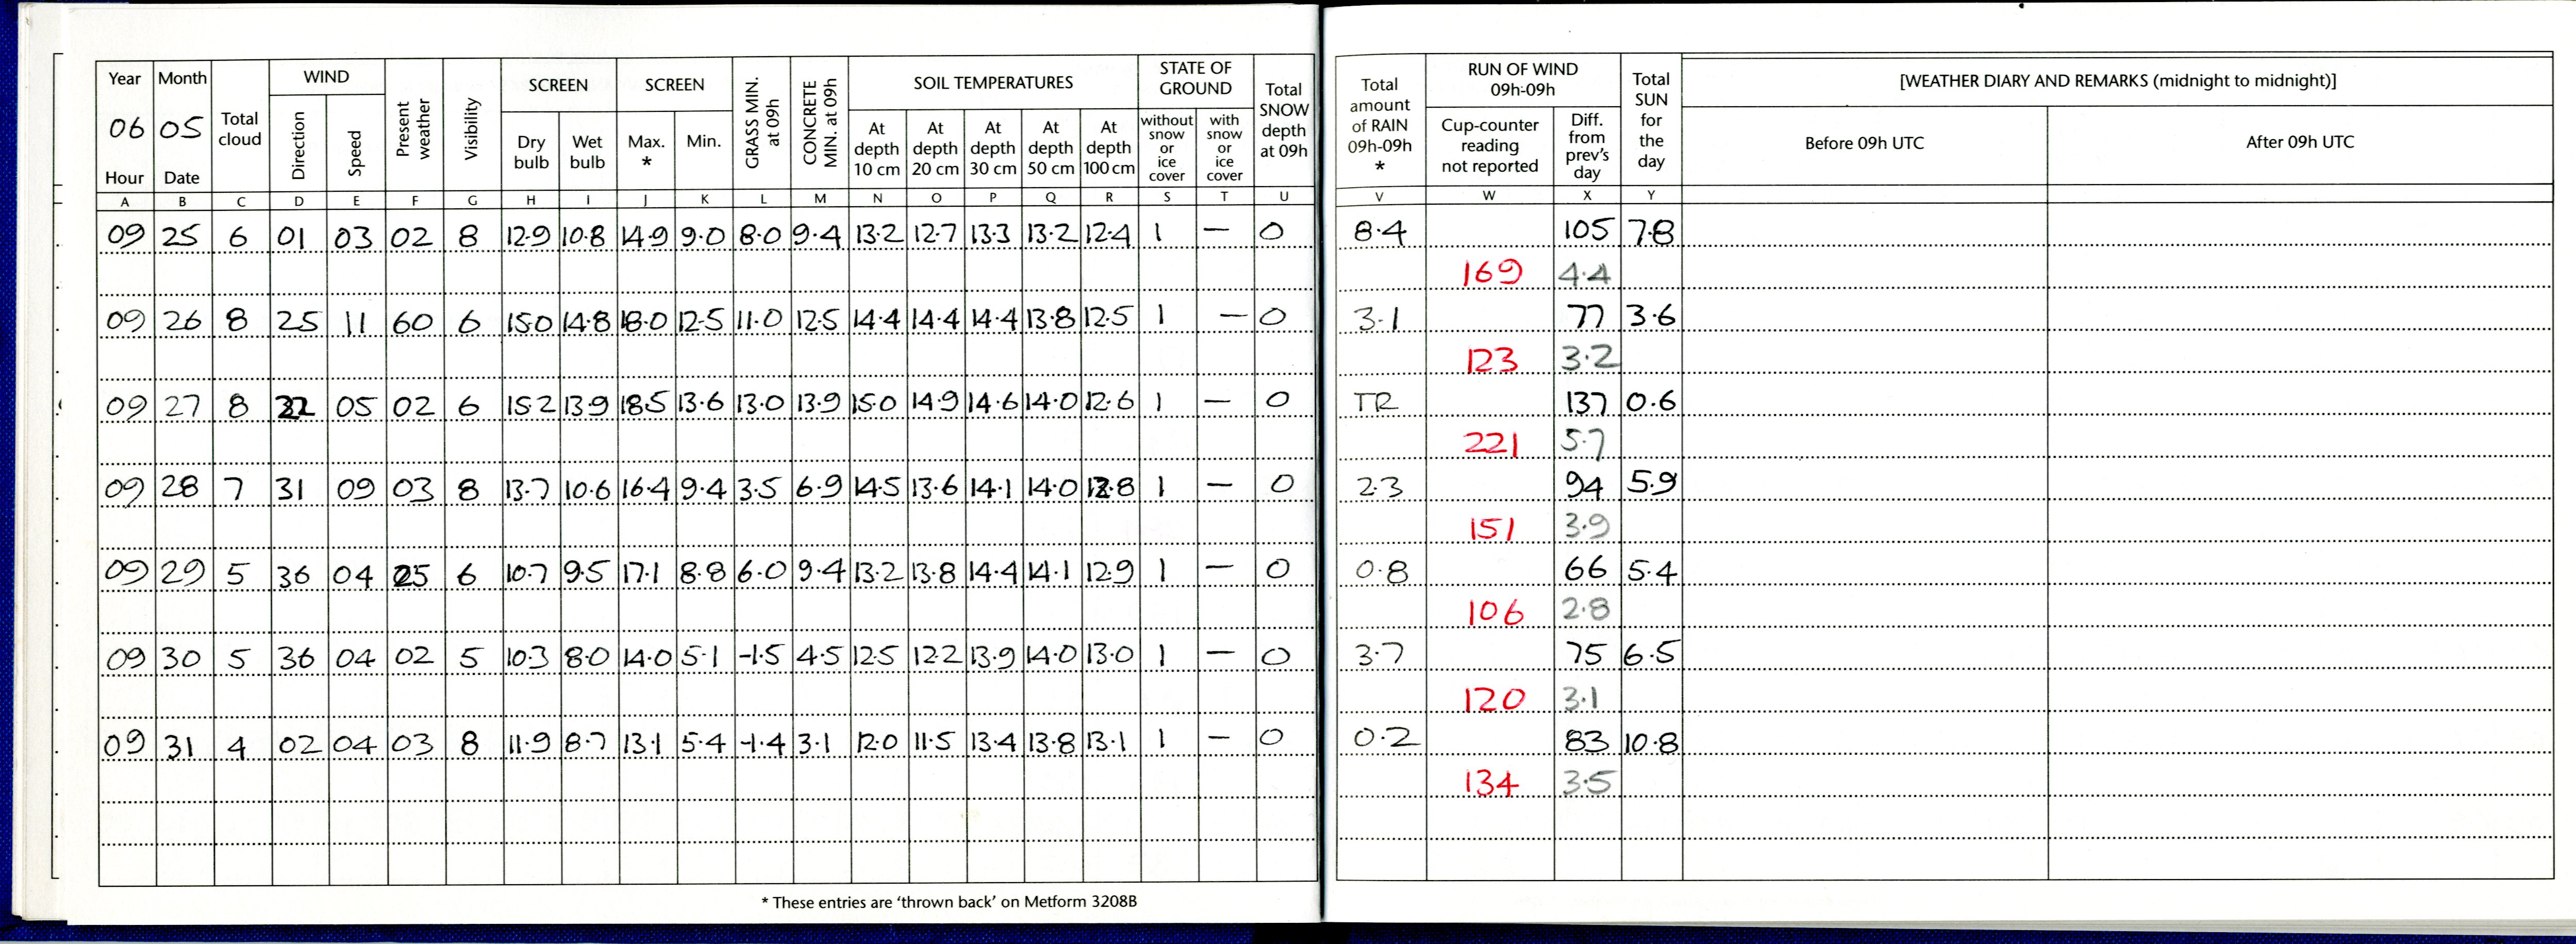 Year Month Total cloud WIND Present weather Visibility SCREEN SCREEN GRASS MIN. at 09h CONCRETE MIN. at 09h SOIL TEMPERATURES STATE OF GROUND Total SNOW depth at 09h Total amount of RAIN 09h-09h * RUN OF WIND 09h-09h Total SUN for the day [WEATHER DIARY AND REMARKS (midnight to midnight)]
06 05 Direction Speed Dry bulb Wet bulb Max. * Min. At depth 10 cm At depth 20 cm At depth 30 cm At depth 50 cm At depth 100 cm without snow or ice cover with snow or ice cover Cup-counter reading not reported Diff. from prev's day Before 09h UTC After 09h UTC
Hour Date
A B C D E F G H I J K L M N O P Q R S T U V W X Y
09 25 6 01 03 02 8 12.9 10.8 14.9 9.0 8.0 9.4 13.2 12.7 13.3 13.2 12.4 1 — 0 8.4 105 7.8
169 4.4
09 26 8 25 11 60 6 15.0 14.8 18.0 12.5 11.0 12.5 14.4 14.4 14.4 13.8 12.5 1 — 0 3.1 77 3.6
123 3.2
09 27 8 32 05 02 6 15.2 13.9 18.5 13.6 13.0 13.9 15.0 14.9 14.6 14.0 12.6 1 — 0 TR 137 0.6
221 5.7
09 28 7 31 09 03 8 13.7 10.6 16.4 9.4 3.5 6.9 14.5 13.6 14.1 14.0 12.8 1 — 0 2.3 94 5.9
151 3.9
09 29 5 36 04 25 6 10.7 9.5 17.1 8.8 6.0 9.4 13.2 13.8 14.4 14.1 12.9 1 — 0 0.8 66 5.4
106 2.8
09 30 5 36 04 02 5 10.3 8.0 14.0 5.1 -1.5 4.5 12.5 12.2 13.9 14.0 13.0 1 — 0 3.7 75 6.5
120 3.1
09 31 4 02 04 03 8 11.9 8.7 13.1 5.4 -1.4 3.1 12.0 11.5 13.4 13.8 13.1 1 — 0 0.2 83 10.8
134 3.5
* These entries are 'thrown back' on Metform 3208B